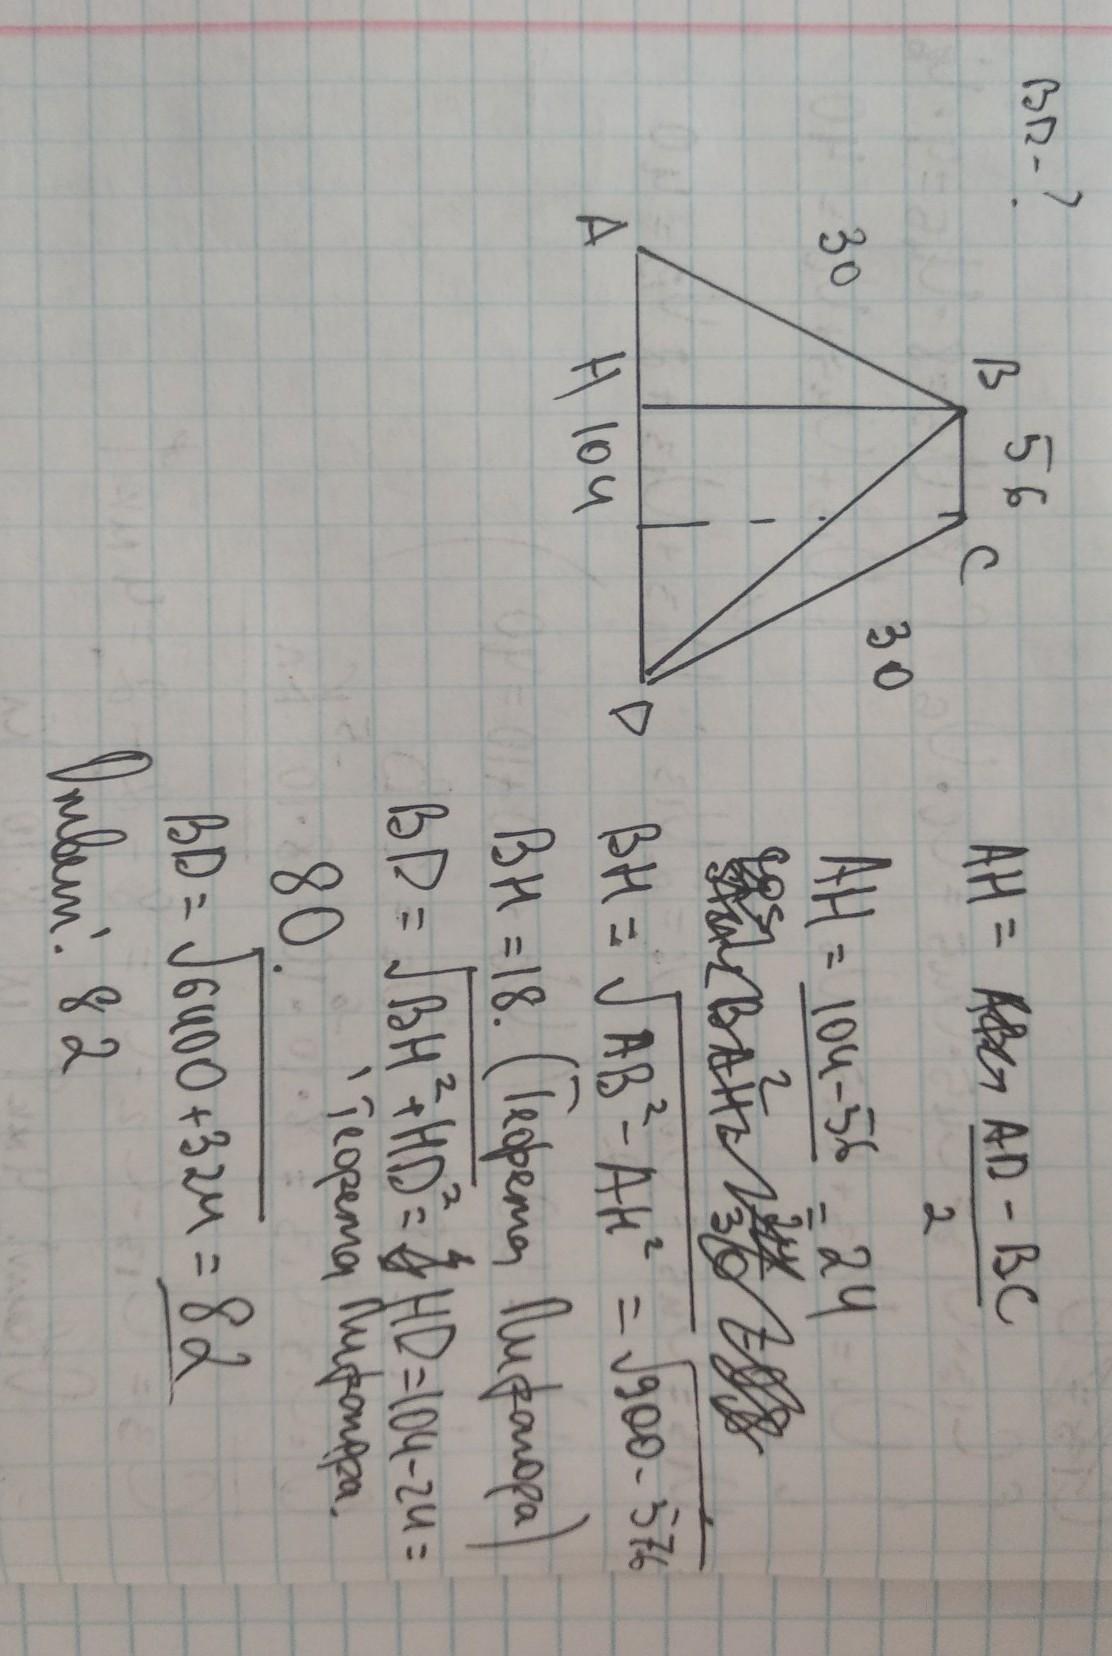 BD - ?
B 56 C
30
30
A H 104 D
AH = AD - BC
2
AH = 104-56 = 24
BH = √AB² - AH² = √900 - 576
BH = 18. (Теорема Пифагора)
BD = √BH² + HD² = HD = 104 - 24 =
80. Теорема Пифагора.
BD = √6400 + 324 = 82
Ответ: 82